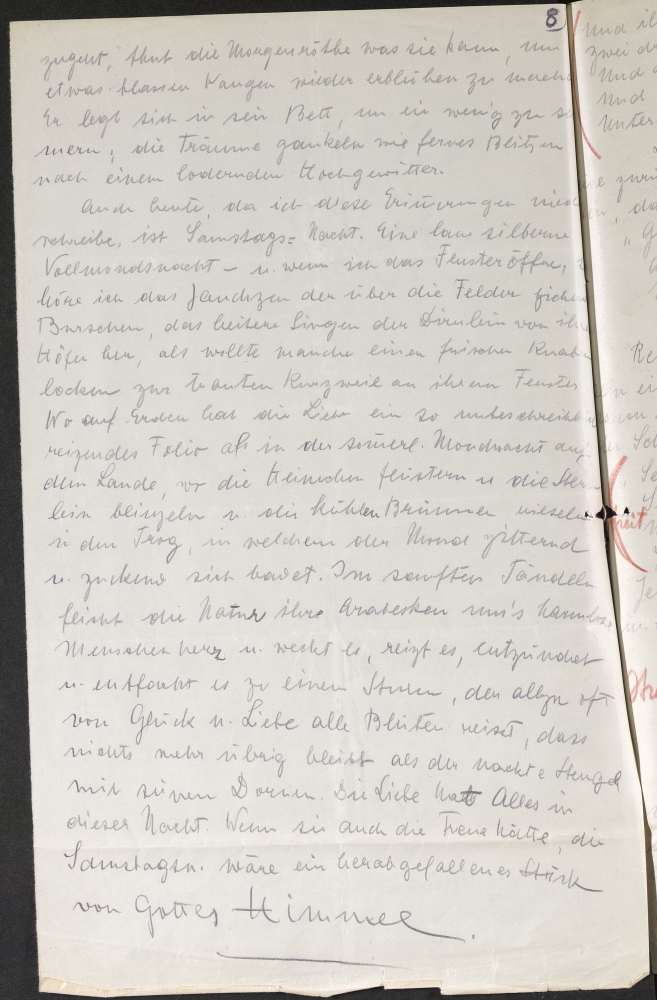 8
zugeht, thut die Morgenröthe was sie kann, um
etwas blassen Wangen wieder erblühen zu machen
Er legt sich in sein Bett, um ein wenig zu
mern; die Träume gaukeln wie fernes Blitzen
nach einem lodernden Hochgewitter.
Auch heute, da ich diese Erinerungen nied
schreibe, ist Samstags= Nacht. Eine laue silberne
Vollmondsnacht – u. wenn ich das Fenster öffne,
höre ich das Jauchzen der über die Felder
Burschen, das heitere Singen der Dirnlein von ih
Höfen her, als wollte manche einen frischen Knab
locken zur trauten Kurzweil an ihrem Fenster
Wo auf Erden hat die Liebe ein so unbeschreib
reizendes Folio als in der somerl. Mondnacht auf
dem Lande, wo die Heimchen flüstern u die Ster
lein blinzeln u die kühlen Brunnen rieseln
in den Trog, in welchem der Mond zitternd
u. zuckend sich badet. Im sanften Tändeln
flicht die Natur ihre Arabesken um's harmlose
Menschenherz u. weckt es, reizt es, entzündet
u. entfacht es zu einem Sturm, der allzu oft
von Glück u. Liebe alle Blüten reisst, dass
nichts mehr übrig bleibt als der nackte Stengel
mit Dornen. Die Liebe hat Alles in
dieser Nacht. Wenn sie auch die Treue hätte, die
Samstagsn. wäre ein herabgefallenes Stück
von Gottes Himmel.
Und
zwei
Und
Und
Unter